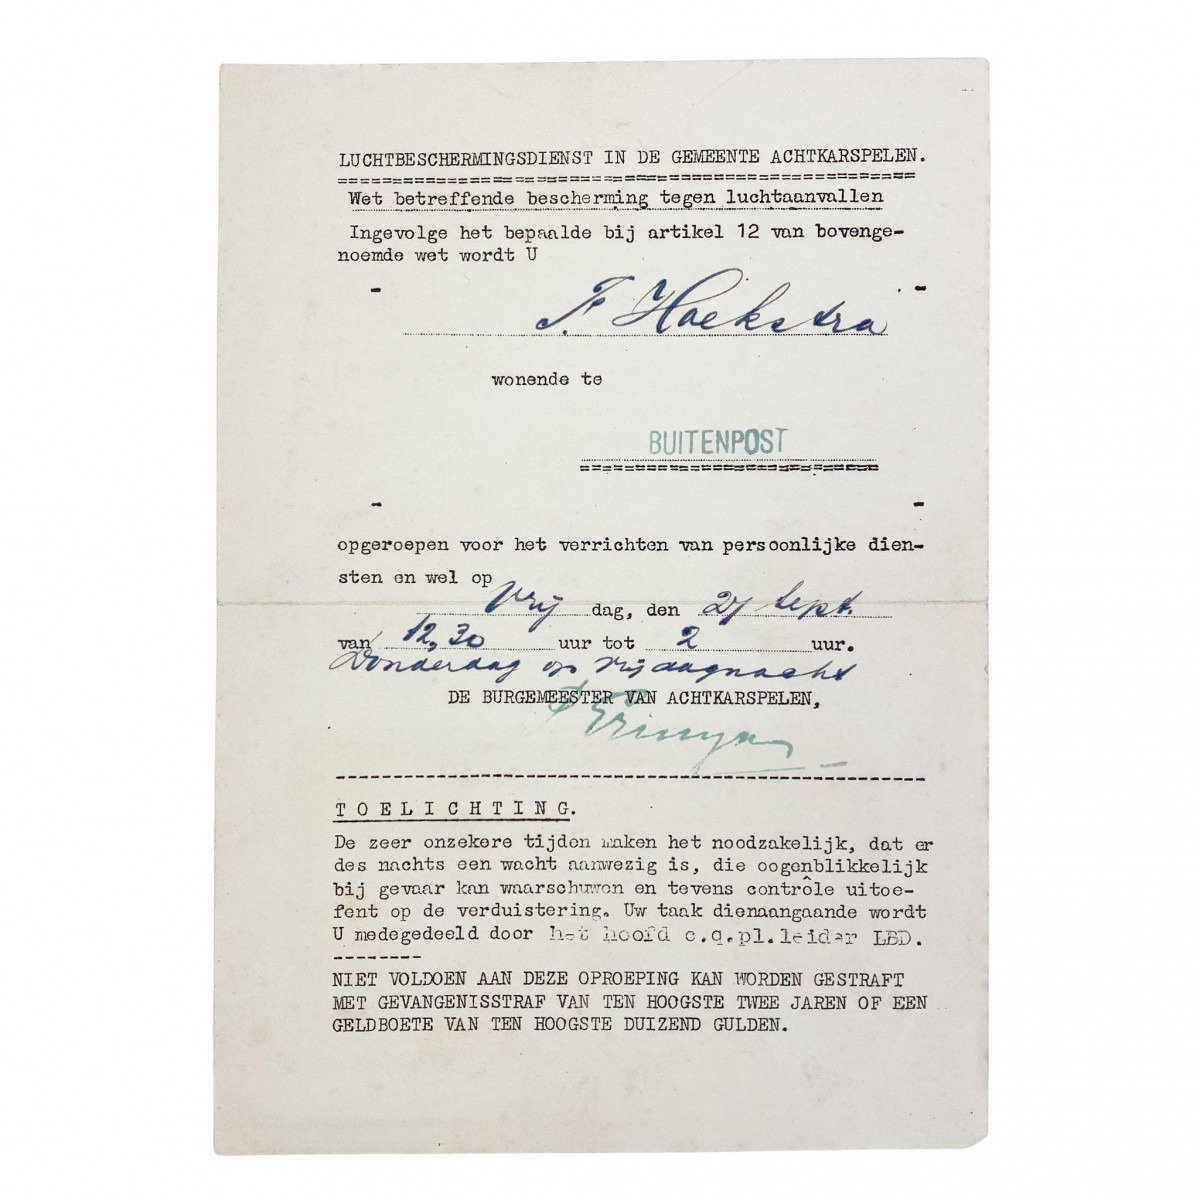 LUCHTBESCHERMINGSDIENST IN DE GEMEENTE ACHTKARSPELEN.
Wet betreffende bescherming tegen luchtaanvallen
Ingevolge het bepaalde bij artikel 12 van bovenge-
noemde wet wordt U
F. Hoekstra
wonende te
BUITENPOST
opgeroepen voor het verrichten van persoonlijke dien-
sten en wel op
Vrij dag, den 27 sept.
van 12,30 uur tot 2 uur.
Donderdag op vrijdagnacht
DE BURGEMEESTER VAN ACHTKARSPELEN,
TOELICHTING.
De zeer onzekere tijden maken het noodzakelijk, dat er
des nachts een wacht aanwezig is, die oogenblikkelijk
bij gevaar kan waarschuwen en tevens contrôle uitoe-
fent op de verduistering. Uw taak dienaangaande wordt
U medegedeeld door het hoofd c.q.pl.leider LBD.
NIET VOLDOEN AAN DEZE OPROEPING KAN WORDEN GESTRAFT
MET GEVANGENISSTRAF VAN TEN HOOGSTE TWEE JAREN OF EEN
GELDBOETE VAN TEN HOOGSTE DUIZEND GULDEN.